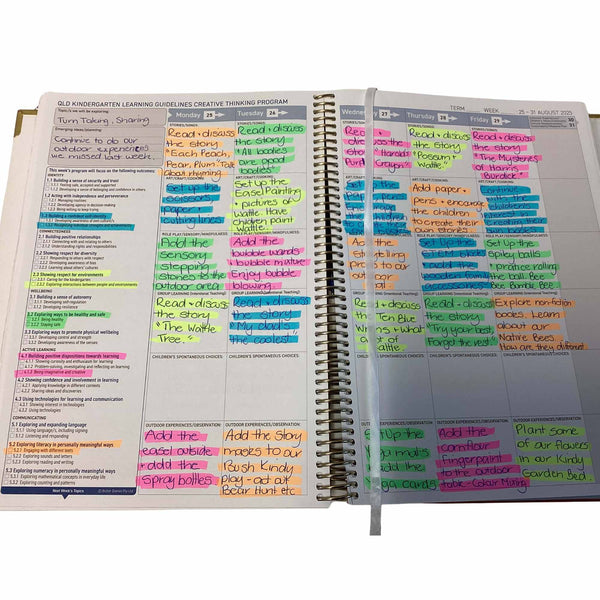 QLD KINDERGARTEN LEARNING GUIDELINES CREATIVE THINKING PROGRAM
TERM WEEK 25 - 31 AUGUST 2025
Monday 25
Tuesday 26
Wednesday 27
Thursday 28
Friday 29
30
31
Turn Taking, Sharing
Emerging ideas/planning:
Continue to do our
outdoor experiences
we missed last week.
This week's program will focus on the following outcomes:
IDENTITY
1.1 Building a sense of security and trust
1.1.1 Feeling safe, accepted and supported
1.1.2 Developing a sense of belonging and confidence in others
1.2 Acting with independence and perseverance
1.2.1 Managing routines
1.2.2 Developing agency in decision-making
1.2.3 Being willing to keep trying
1.3 Building a confident self-identity
CONNECTEDNESS
2.1 Building positive relationships
2.1.1 Connecting with and relating to others
2.1.2 Understanding rights and responsibilities
2.2 Showing respect for diversity
2.2.1 Responding to others with respect
2.2.2 Developing awareness of bias
2.2.3 Learning about others' cultures
2.3 Showing respect for environments
2.3.1 Caring for the kindergarten
2.3.2 Exploring interactions between people and environments
WELLBEING
3.1 Building a sense of autonomy
3.1.1 Developing self-regulation
3.1.2 Developing resilience
3.2 Exploring ways to be healthy and safe
3.2.1 Being healthy
3.2.2 Staying safe
3.3 Exploring ways to promote physical wellbeing
3.3.1 Developing control and strength
3.3.2 Developing awareness of the senses
ACTIVE LEARNING
4.1 Building positive dispositions towards learning
4.1.1 Showing curiosity and enthusiasm for learning
4.1.2 Problem-solving, investigating and reflecting on learning
4.1.3 Being imaginative and creative
4.2 Showing confidence and involvement in learning
4.2.1 Applying knowledge in different contexts
4.2.2 Sharing ideas and discoveries
4.3 Using technologies for learning and communication
4.3.1 Showing interest in technology
4.3.2 Using technologies
COMMUNICATING
5.1 Exploring and expanding language
5.1.1 Using language/s, including signing
5.1.2 Listening and responding
5.2 Exploring literacy in personally meaningful ways
5.2.1 Engaging with different texts
5.2.3 Exploring reading and writing
5.3 Exploring numeracy in personally meaningful ways
5.3.1 Exploring mathematical concepts in everyday life
5.3.2 Exploring counting and patterns
Next Week's Topics
STORIES/SONGS:
Read + discuss
the story
"Each Peach,
Pear, Plum." Talk
about rhyming.
STORIES/SONGS:
Read + discuss
the story
"All bodies
are good
bodies"
STORIES/SONGS:
"Harold
Purple Crayon"
STORIES/SONGS:
Read + discuss
the story
"Possum +
Wattle"
STORIES/SONGS:
Read + discuss
the story
"The Mysteries
of Harris
Burdick"
Set up the
scissors
Paper +
cutting lines
Set up the
Easel Painting
+ pictures of
Wattle. Have
children paint
Wattle.
ART/CRAFT/COOKING:
Add paper +
pens + encourage
the children
to create their
own stories.
ART/CRAFT/COOKING:
Continue
creating their
Add the
sensory
stepping
stones to the
outdoor area
Add the
bubble wands
+ mixture
Enjoy bubble
blowing.
Add the
storytelling
props to our
Set Up the
accessories
Set Up the
Spikey balls
+ practice rolling
the ball Bee
Bee Bumble Bee
Read + discuss
the story
"The Wattle
Tree."
Read + discuss
the story
"My dad's
the coolest"
Read + discuss
the Ten Blue
Wrens + what
Read + discuss
the story
"Try your best,
Forget the rest!"
Explore non-fiction
books. Learn
about our
Native Bees.
How are they different
CHILDREN'S SPONTANEOUS CHOICES:
CHILDREN'S SPONTANEOUS CHOICES:
CHILDREN'S SPONTANEOUS CHOICES:
CHILDREN'S SPONTANEOUS CHOICES:
OUTDOOR EXPERIENCES/OBSERVATION:
Add the
easel outside
+ add the
spray bottles
OUTDOOR EXPERIENCES/OBSERVATION:
Add the story
masks to our
Bush Kindy
play - act out
Bear Hunt etc
Set Up the
Yoga mats
+ add the
Yoga cards
OUTDOOR EXPERIENCES/OBSERVATION:
Add the
cornflour
Fingerpaint
to the outdoor
table - Colour Mixing
Plant some
of our flowers
in our Kindy
Garden Bed.